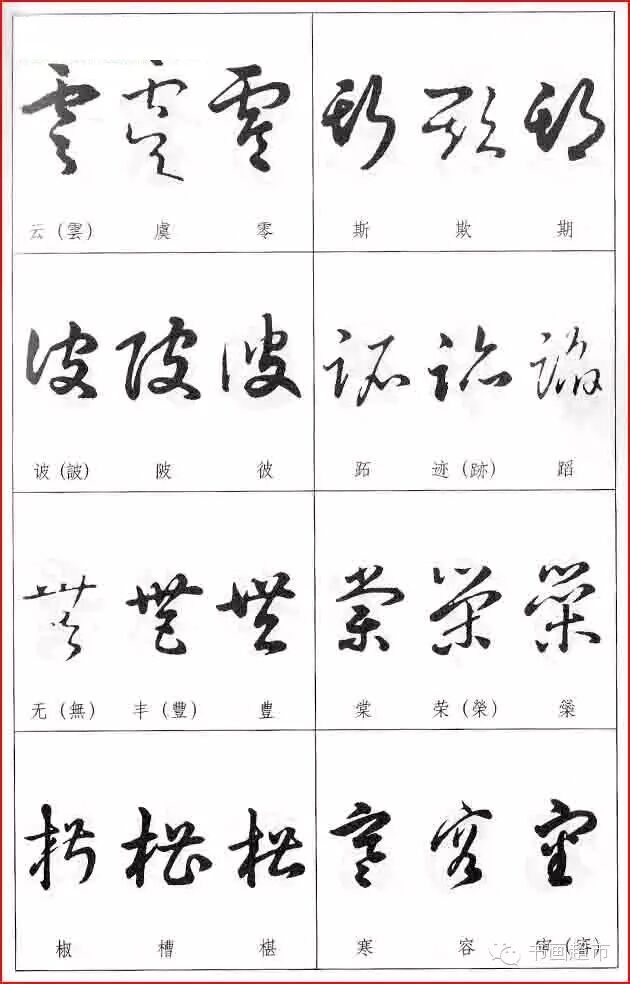 云（雲） 虞 零 斯 欺 期
诐（詖） 陂 彼 跖 迹（跡） 蹈
无（無） 丰（豐） 豊 棠 荣（榮） 櫱
椒 槽 椹 寒 容 审（審）
书画超市